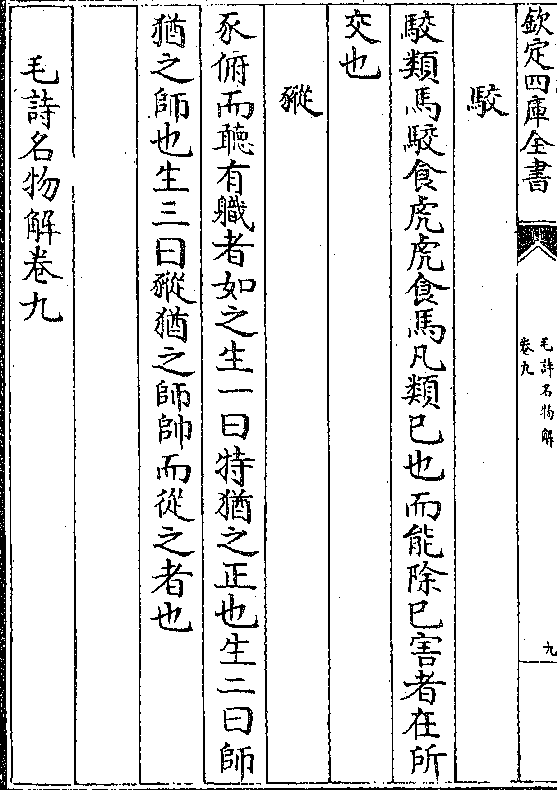 欽定四庫全書
毛詩名物解
卷九
九
駮
駮類馬駮食虎虎食馬凡類已也而能除已害者在所
交也
豵
豕俯而聽有職者如之生一曰特猶之正也生二曰師
猶之師也生三曰豵猶之師帥而從之者也
毛詩名物解卷九